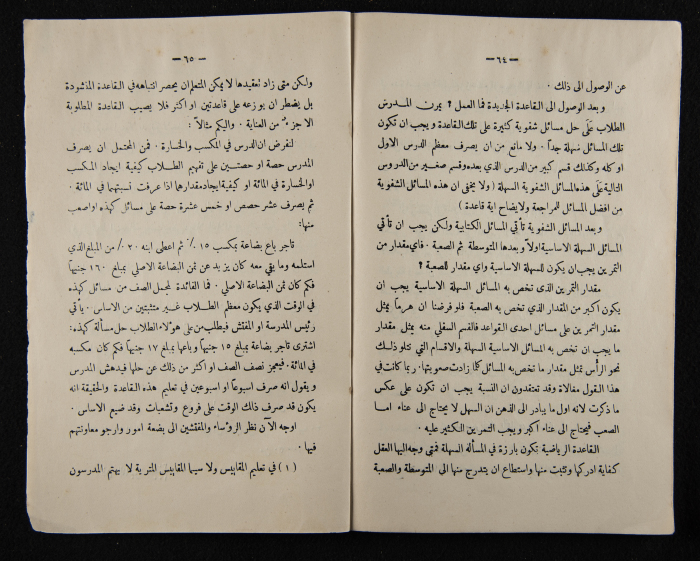 — ٦٤ —
عن الوصول الى ذلك .
وبعد الوصول الى القاعدة الجديدة فما العمل ؟ يمرن المدرس
الطلاب عَلَى حل مسائل شفوية كثيرة على تلك القاعدة ويجب ان تكون
تلك المسائل سهلة جداً . ولا مانع من ان يصرف معظم الدرس الاول
او كله وكذلك قسم كبير من الدرس الذي بعده وقسم صغير من الدروس
التالية عَلَى هذه المسائل الشفوية السهلة ( ولا يخفى ان هذه المسائل الشفوية
من افضل المسائل للمراجعة ولايضاح اية قاعدة )
وبعد المسائل الشفوية تأتي المسائل الكتابية ولكن يجب ان تأتي
المسائل السهلة الاساسية اولاً وبعدها المتوسطة ثم الصعبة . فاي مقدار من
التمرين يجب ان يكون للسهلة الاساسية واي مقدار للصعبة ؟
مقدار التمرين الذي تخص به المسائل السهلة الاساسية يجب ان
يكون اكبر من المقدار الذي تخص به الصعبة فلو فرضنا ان هرماً يمثل
مقدار التمرين على مسائل احدى القواعد فالقسم السفلي منه يمثل مقدار
ما يجب ان تخص به المسائل الاساسية السهلة والاقسام التي تتلو ذلك
نحو الرأس تمثل مقدار ما تخص به المسائل كلما زادت صعوبتها . ربما كانت في
هذا القول مغالاة وقد تعتقدون ان النسبة يجب ان تكون على عكس
ما ذكرت لانه اول ما يبادر الى الذهن ان السهل لا يحتاج الى عناء اما
الصعب فيحتاج الى عناء اكبر ويجب التمرين الكثير عليه .
القاعدة الرياضية تكون بارزة في المسألة السهلة فمتى وجه اليها العقل
كفاية ادركها وتثبت منها واستطاع ان يتدرج منها الى المتوسطة والصعبة
— ٦٥ —
ولكن متى زاد تعقيدها لا يمكن المتعلم ان يحصر انتباهه في القاعدة المنشودة
بل يضطر ان يوزعه على قاعدتين او اكثر فلا يصيب القاعدة المطلوبة
الا جزءٌ من العناية . واليكم مثالاً :
لنفرض ان الدرس في المكسب والخسارة . فمن المحتمل ان يصرف
المدرس حصة او حصتين على تفهيم الطلاب كيفية ايجاد المكسب
او الخسارة في المائة او كيفية ايجاد مقدارها اذا عرفت نسبتهما في المائة .
ثم يصرف عشر حصص او خمس عشرة حصة على مسائل كهذه او اصعب
منها :
تاجر باع بضاعة بمكسب ١٥ ٪ ثم اعطى ابنه ٢٠ ٪ من المبلغ الذي
استلمه وما بقي معه كان يزيد عن ثمن البضاعة الاصلي بمبلغ ١٦٠ جنيهاً
فكم كان ثمن البضاعة الاصلي . فما الفائدة لمجمل الصف من مسائل كهذه
في الوقت الذي يكون معظم الطلاب غير متثبتين من الاساس . يأتي
رئيس المدرسة او المفتش فيطلب من على هؤلاء الطلاب حل مسألة كهذه :
اشترى تاجر بضاعة بمبلغ ١٥ جنيهاً وباعها بمبلغ ١٧ جنيهاً فكم كان مكسبه
في المائة . فيعجز نصف الصف او اكثر من ذلك عن حلها فيدهش المدرس
ويقول انه صرف اسبوعاً او اسبوعين في تعليم هذه القاعدة والحقيقة انه
يكون قد صرف ذلك الوقت على فروع وتشعبات وقد ضيع الاساس .
اوجه الآن نظر الرؤساء والمفتشين الى بضعة امور وارجو معاونتهم
فيها .
( ١ ) في تعليم المقاييس ولا سيما المقاييس المترية لا يهتم المدرسون